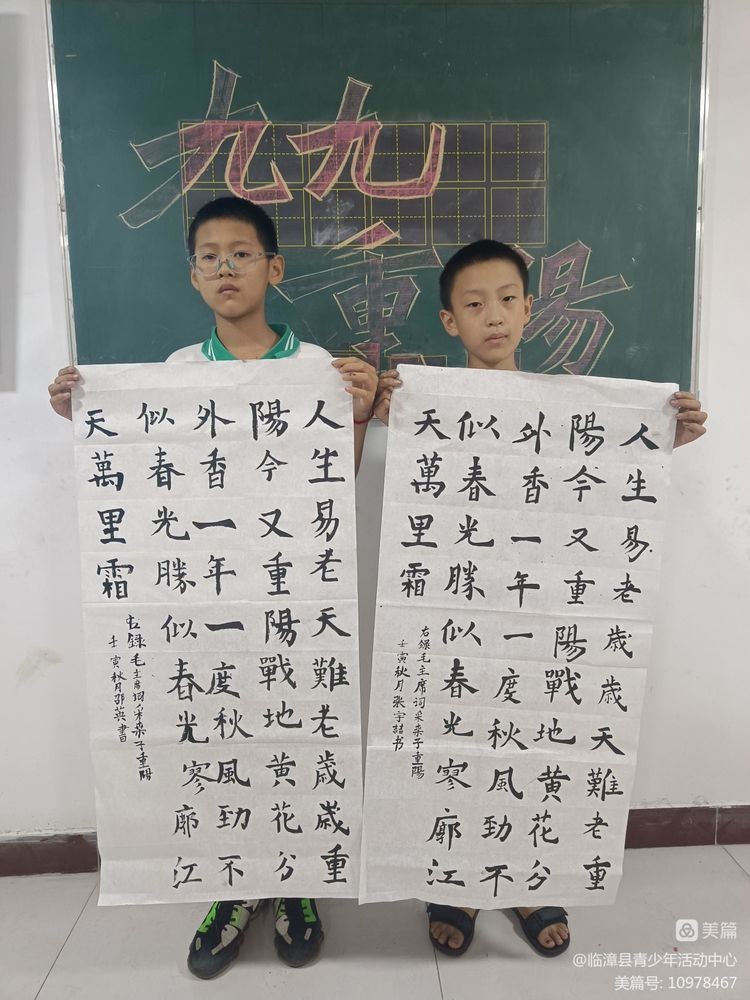 九九
重陽
人生易老天難老歲歲重
陽今又重陽戰地黃花分
外香一年一度秋風勁不
似春光勝似春光寥廓江
天萬里霜
右錄毛主席词采桑子重陽
壬寅秋月邵英書
人生易老歲歲天難老重
陽今又重陽戰地黃花分
外香一年一度秋風勁不
似春光勝似春光寥廓江
天萬里霜
右錄毛主席词采桑子重陽
壬寅秋月张宇喆书
美篇
@临漳县青少年活动中心
美篇号: 10978467